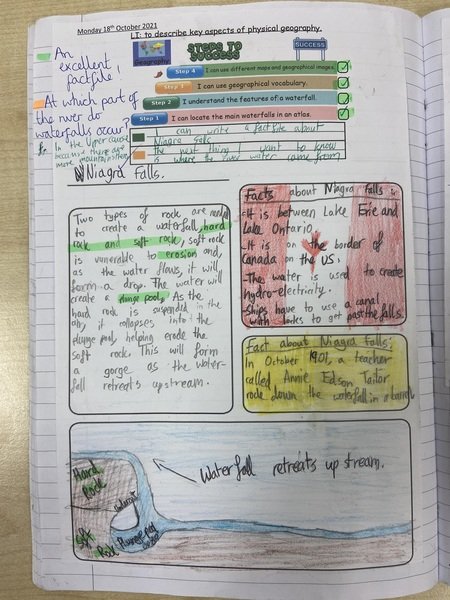 Monday 18th October 2021
LI: to describe key aspects of physical geography.
An
excellent
factfile!
At which part of
the river do
waterfalls occur?
In the Upper course
because there are
more mountains there
Geography
STEPS TO
SUCCESS
SUCCESS
Step 4 I can use different maps and geographical images.
Step 3 I can use geographical vocabulary.
Step 2 I understand the features of a waterfall.
Step 1 I can locate the main waterfalls in an atlas.
I can write a factfile about
Niagra falls
the next thing I want to know
is where the river water came from
Niagra Falls.
Two types of rock are needed
to create a waterfall, hard
rock and soft rock, soft rock
is vunerable to erosion and,
as the water flows, it will
form a drop. The water will
create a plunge pool. As the
hard rock is suspended in the
air, it collapses into the
plunge pool, helping erode the
soft rock. This will form
a gorge as the water-
fall retreats upstream.
Facts about Niagra falls:
-It is between Lake Erie and
Lake Ontario.
-It is on the border of
Canada on the US.
-The water is used to create
hydro-electricity.
-Ships have to use a canal
with locks to get past the falls.
Fact about Niagra falls:
In October 1901, a teacher
called Annie Edson Tailor
rode down the waterfall in a barrel
Waterfall retreats up stream.
Hard
Rock
Soft
Rock
Plunge pool